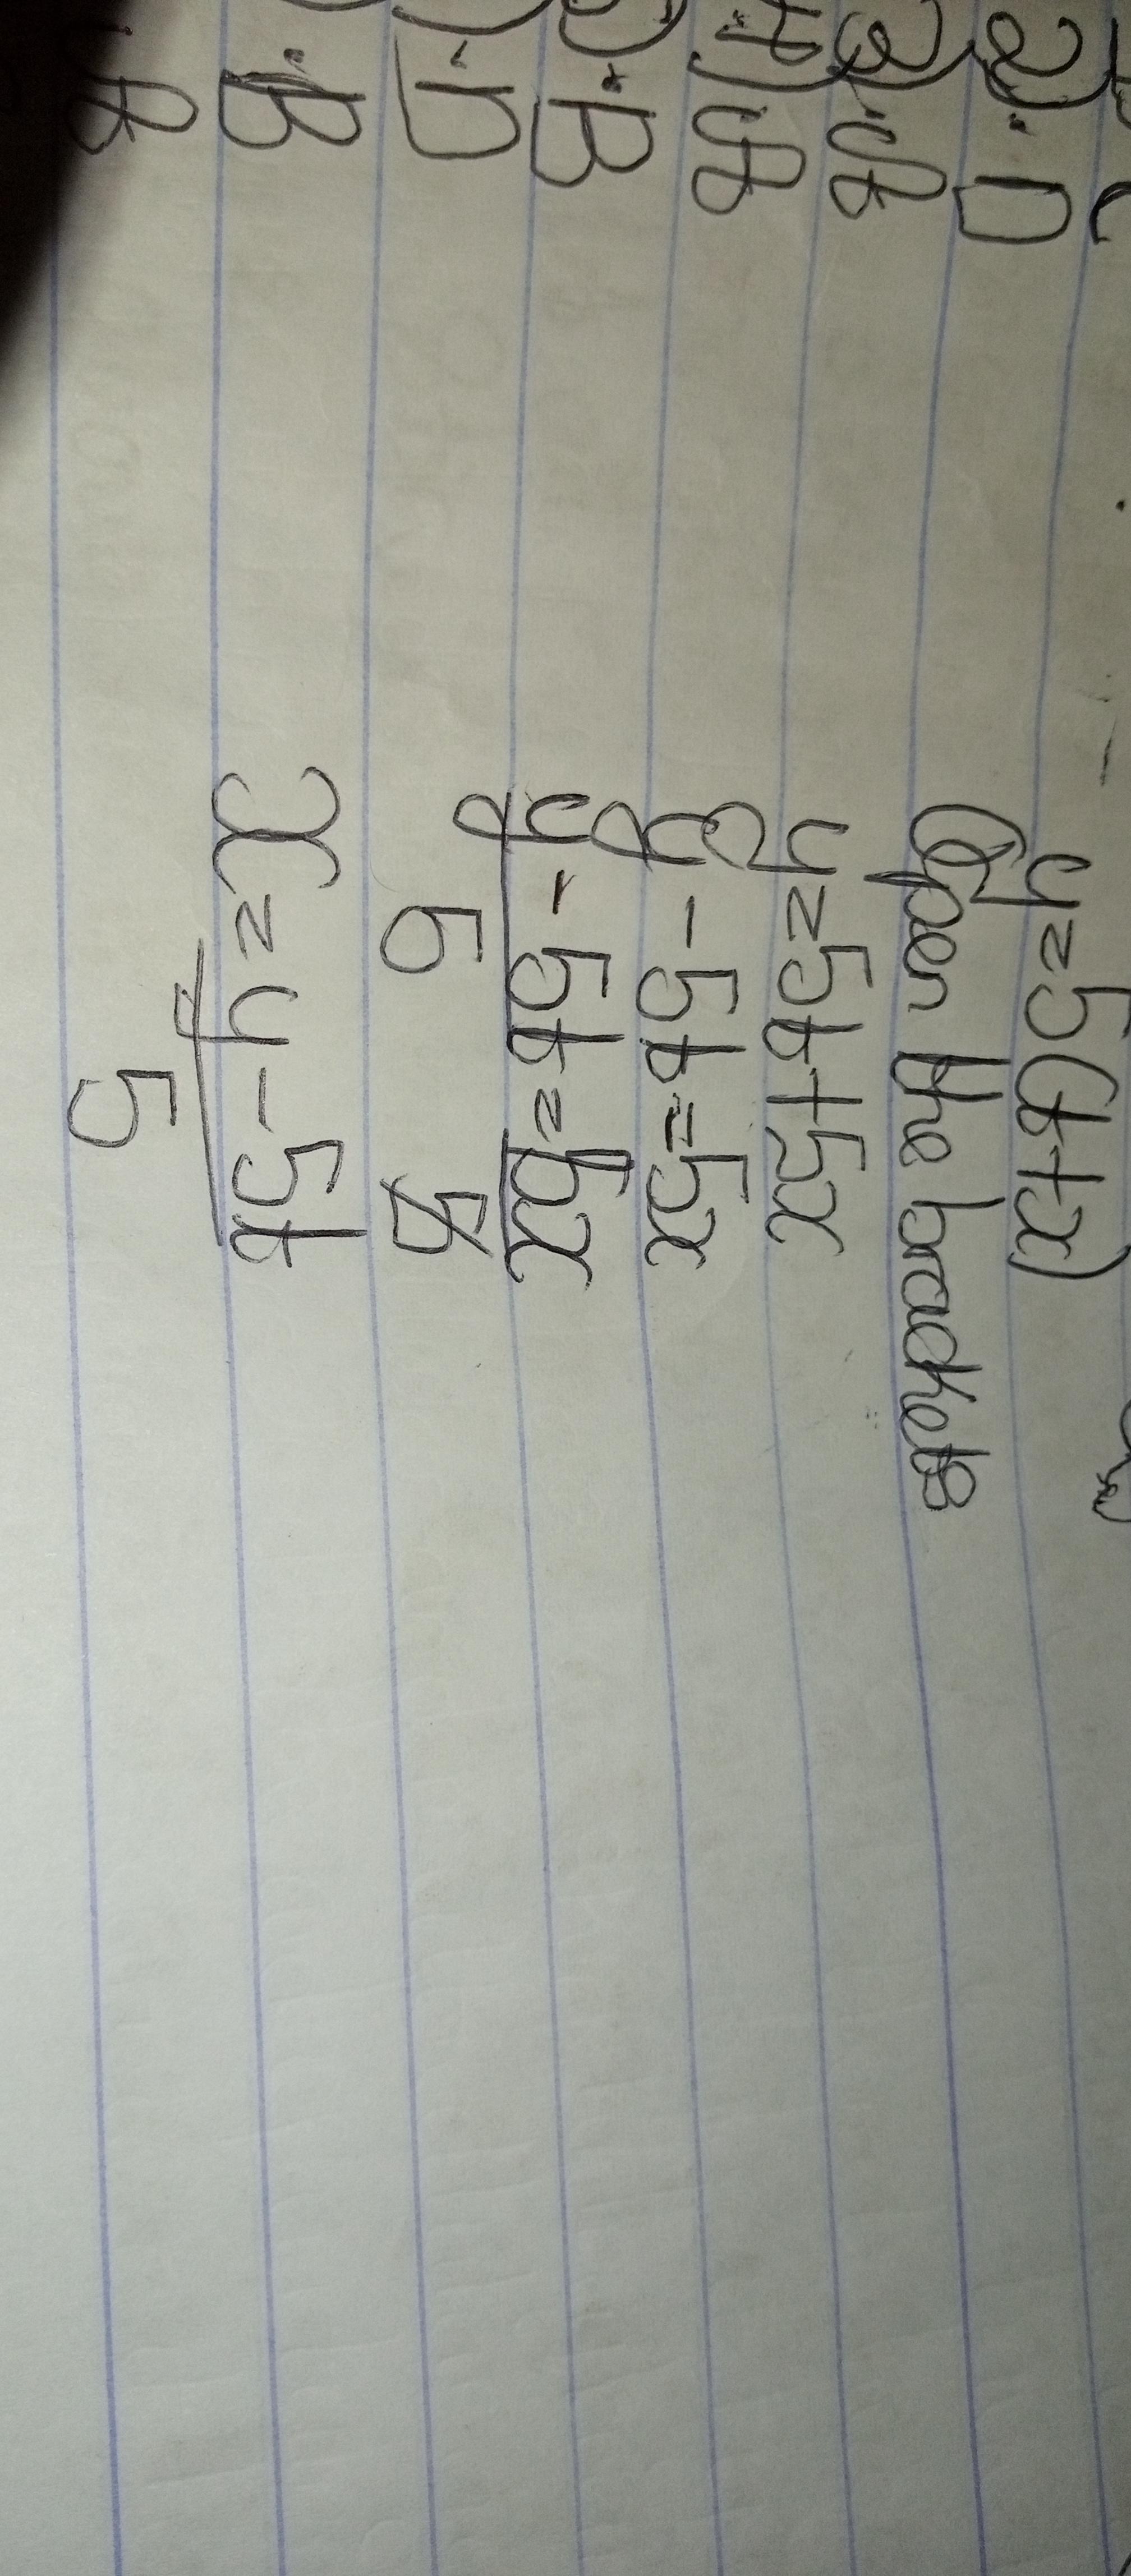 2) . D
y = 5(t+x)
3) . A
Open the brackets
y = 5t+5x
4) A
y - 5t = 5x
. B
y - 5t = 5x
. D
5 5
. B
x = y - 5t
. A
5